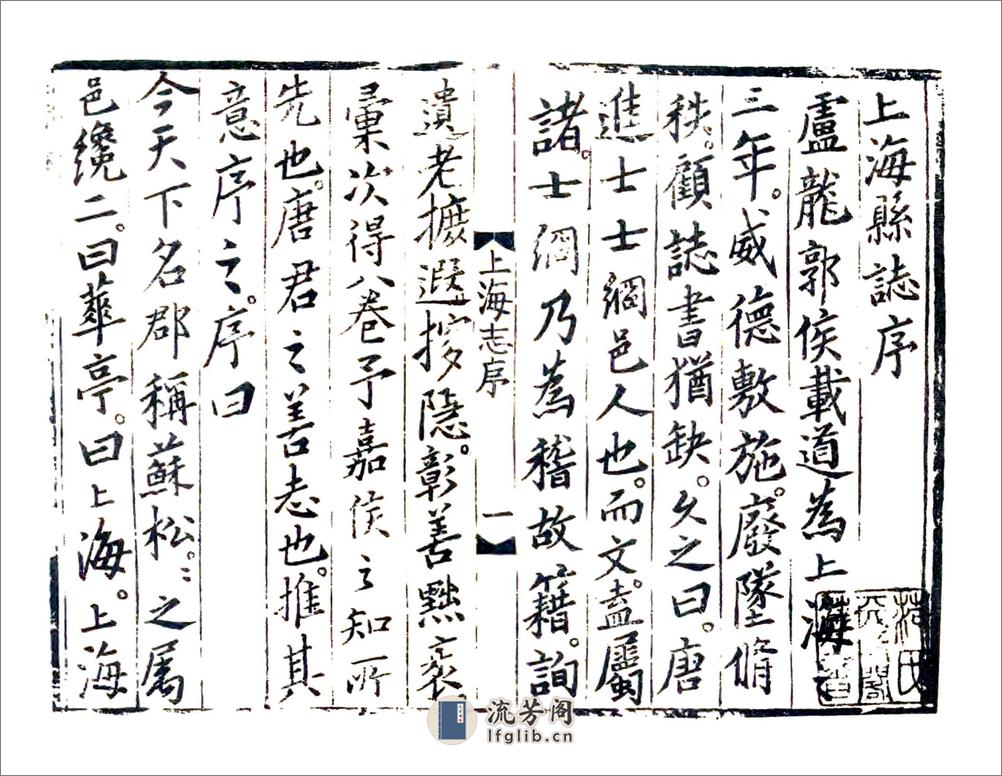 上海縣誌序
盧龍郭侯載道為上海
三年。威德敷施。廢墜脩
秩。顧誌書猶缺。久之曰。唐
進士士綱邑人也。而文。盍屬
諸。士綱乃為稽故籍。詢
上海志序 一
遺老。摭遐搜隱。彰善黜袤。
彙次得八卷予嘉侯之知所
先也。唐君之善志也。推其
意序之。序曰
今天下名郡稱蘇松。〻之属
邑纔二。曰華亭。曰上海。上海
流芳阁
lfglib.cn